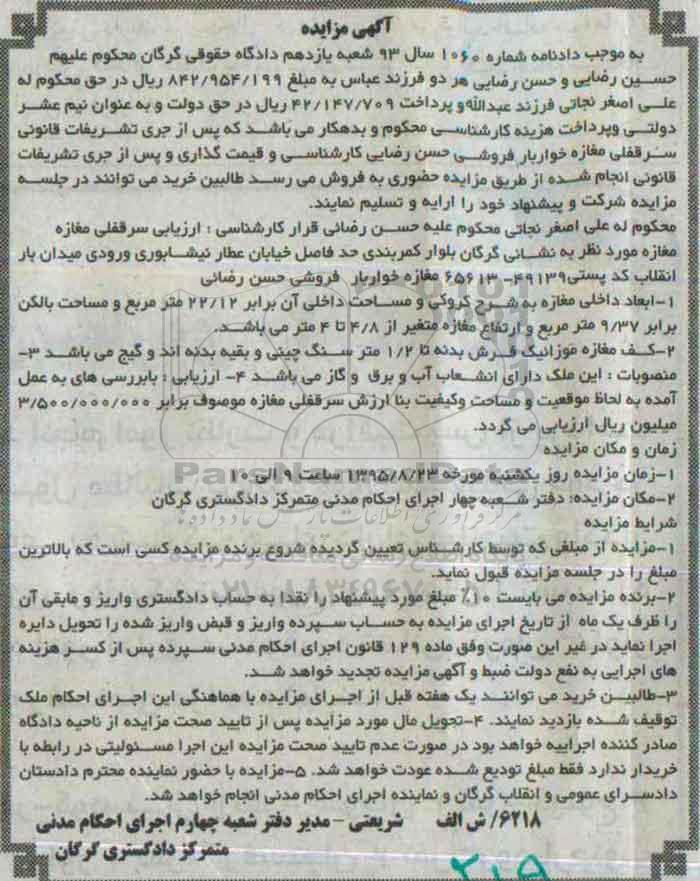 آگهی مزایده
به موجب دادنامه شماره ۱۰۶۰ سال ۹۳ شعبه یازدهم دادگاه حقوقی گرگان محکوم علیهم
حسین رضایی و حسن رضایی هر دو فرزند عباس به مبلغ ۸۴۲/۹۵۴/۱۹۹ ریال در حق محکوم له
علی اصغر نجاتی فرزند عبدالله و پرداخت ۴۲/۱۴۷/۷۰۹ ریال در حق دولت و به عنوان نیم عشر
دولتی وپرداخت هزینه کارشناسی محکوم و بدهکار می باشد که پس از جری تشریفات قانونی
سرقفلی مغازه خواربار فروشی حسن رضایی کارشناسی و قیمت گذاری و پس از جری تشریفات
قانونی انجام شده از طریق مزایده حضوری به فروش می رسد طالبین خرید می توانند در جلسه
مزایده شرکت و پیشنهاد خود را ارایه و تسلیم نمایند.
محکوم له علی اصغر نجاتی محکوم علیه حسن رضائی قرار کارشناسی : ارزیابی سرقفلی مغازه
مغازه مورد نظر به نشانی گرگان بلوار کمربندی حد فاصل خیابان عطار نیشابوری ورودی میدان بار
انقلاب کد پستی۴۹۱۳۹- ۶۵۶۱۳ مغازه خواربار فروشی حسن رضائی
۱-ابعاد داخلی مغازه به شرح کروکی و مساحت داخلی آن برابر ۲۲/۱۲ متر مربع و مساحت بالکن
برابر ۹/۳۷ متر مربع و ارتفاع مغازه متغیر از ۴/۸ تا ۴ متر می باشد.
۲-کف مغازه موزائیک فرش بدنه تا ۱/۲ متر سنگ چینی و بقیه بدنه اند و گیج می باشد ۳-
منصوبات : این ملک دارای انشعاب آب و برق و گاز می باشد ۴- ارزیابی : بابررسی های به عمل
آمده به لحاظ موقعیت و مساحت وکیفیت بنا ارزش سرقفلی مغازه موصوف برابر ۳/۵۰۰/۰۰۰/۰۰۰
میلیون ریال ارزیابی می گردد.
زمان و مکان مزایده
۱-زمان مزایده روز یکشنبه مورخه ۱۳۹۵/۸/۲۳ ساعت ۹ الی ۱۰
۲-مکان مزایده: دفتر شعبه چهار اجرای احکام مدنی متمرکز دادگستری گرگان
شرایط مزایده
۱-مزایده از مبلغی که توسط کارشناس تعیین گردیده شروع برنده مزایده کسی است که بالاترین
مبلغ را در جلسه مزایده قبول نماید.
۲-برنده مزایده می بایست ۱۰٪ مبلغ مورد پیشنهاد را نقدا به حساب دادگستری واریز و مابقی آن
را ظرف یک ماه از تاریخ اجرای مزایده به حساب سپرده واریز و قبض واریز شده را تحویل دایره
اجرا نماید در غیر این صورت وفق ماده ۱۲۹ قانون اجرای احکام مدنی سپرده پس از کسر هزینه
های اجرایی به نفع دولت ضبط و آگهی مزایده تجدید خواهد شد.
۳-طالبین خرید می توانند یک هفته قبل از اجرای مزایده با هماهنگی این اجرای احکام ملک
توقیف شده بازدید نمایند. ۴-تحویل مال مورد مزایده پس از تایید صحت مزایده از ناحیه دادگاه
صادر کننده اجراییه خواهد بود در صورت عدم تایید صحت مزایده این اجرا مسئولیتی در رابطه با
خریدار ندارد فقط مبلغ تودیع شده عودت خواهد شد. ۵-مزایده با حضور نماینده محترم دادستان
دادسرای عمومی و انقلاب گرگان و نماینده اجرای احکام مدنی انجام خواهد شد.
۶۲۱۸/ ش الف شریعتی – مدیر دفتر شعبه چهارم اجرای احکام مدنی
متمرکز دادگستری گرگان
۲۱۵